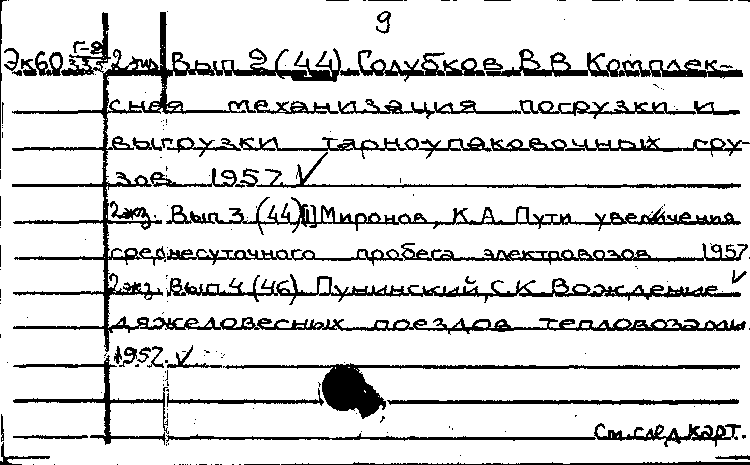 9
Эк60 Г-8 2 экз. Вып 2 (44). Голубков В.В Комплек-
сная механизация погрузки и
выгрузки тарноупаковочных гру-
зов. 1957. ✓
2экз. Вып 3 (44) Миронов, К.А. Пути увеличения
среднесуточного пробега электровозов 1957.
2экз. Вып 4 (46). Пунинский, С.К Вождение ✓
дяжеловесных поездов тепловозами
1957. ✓
См. след карт.